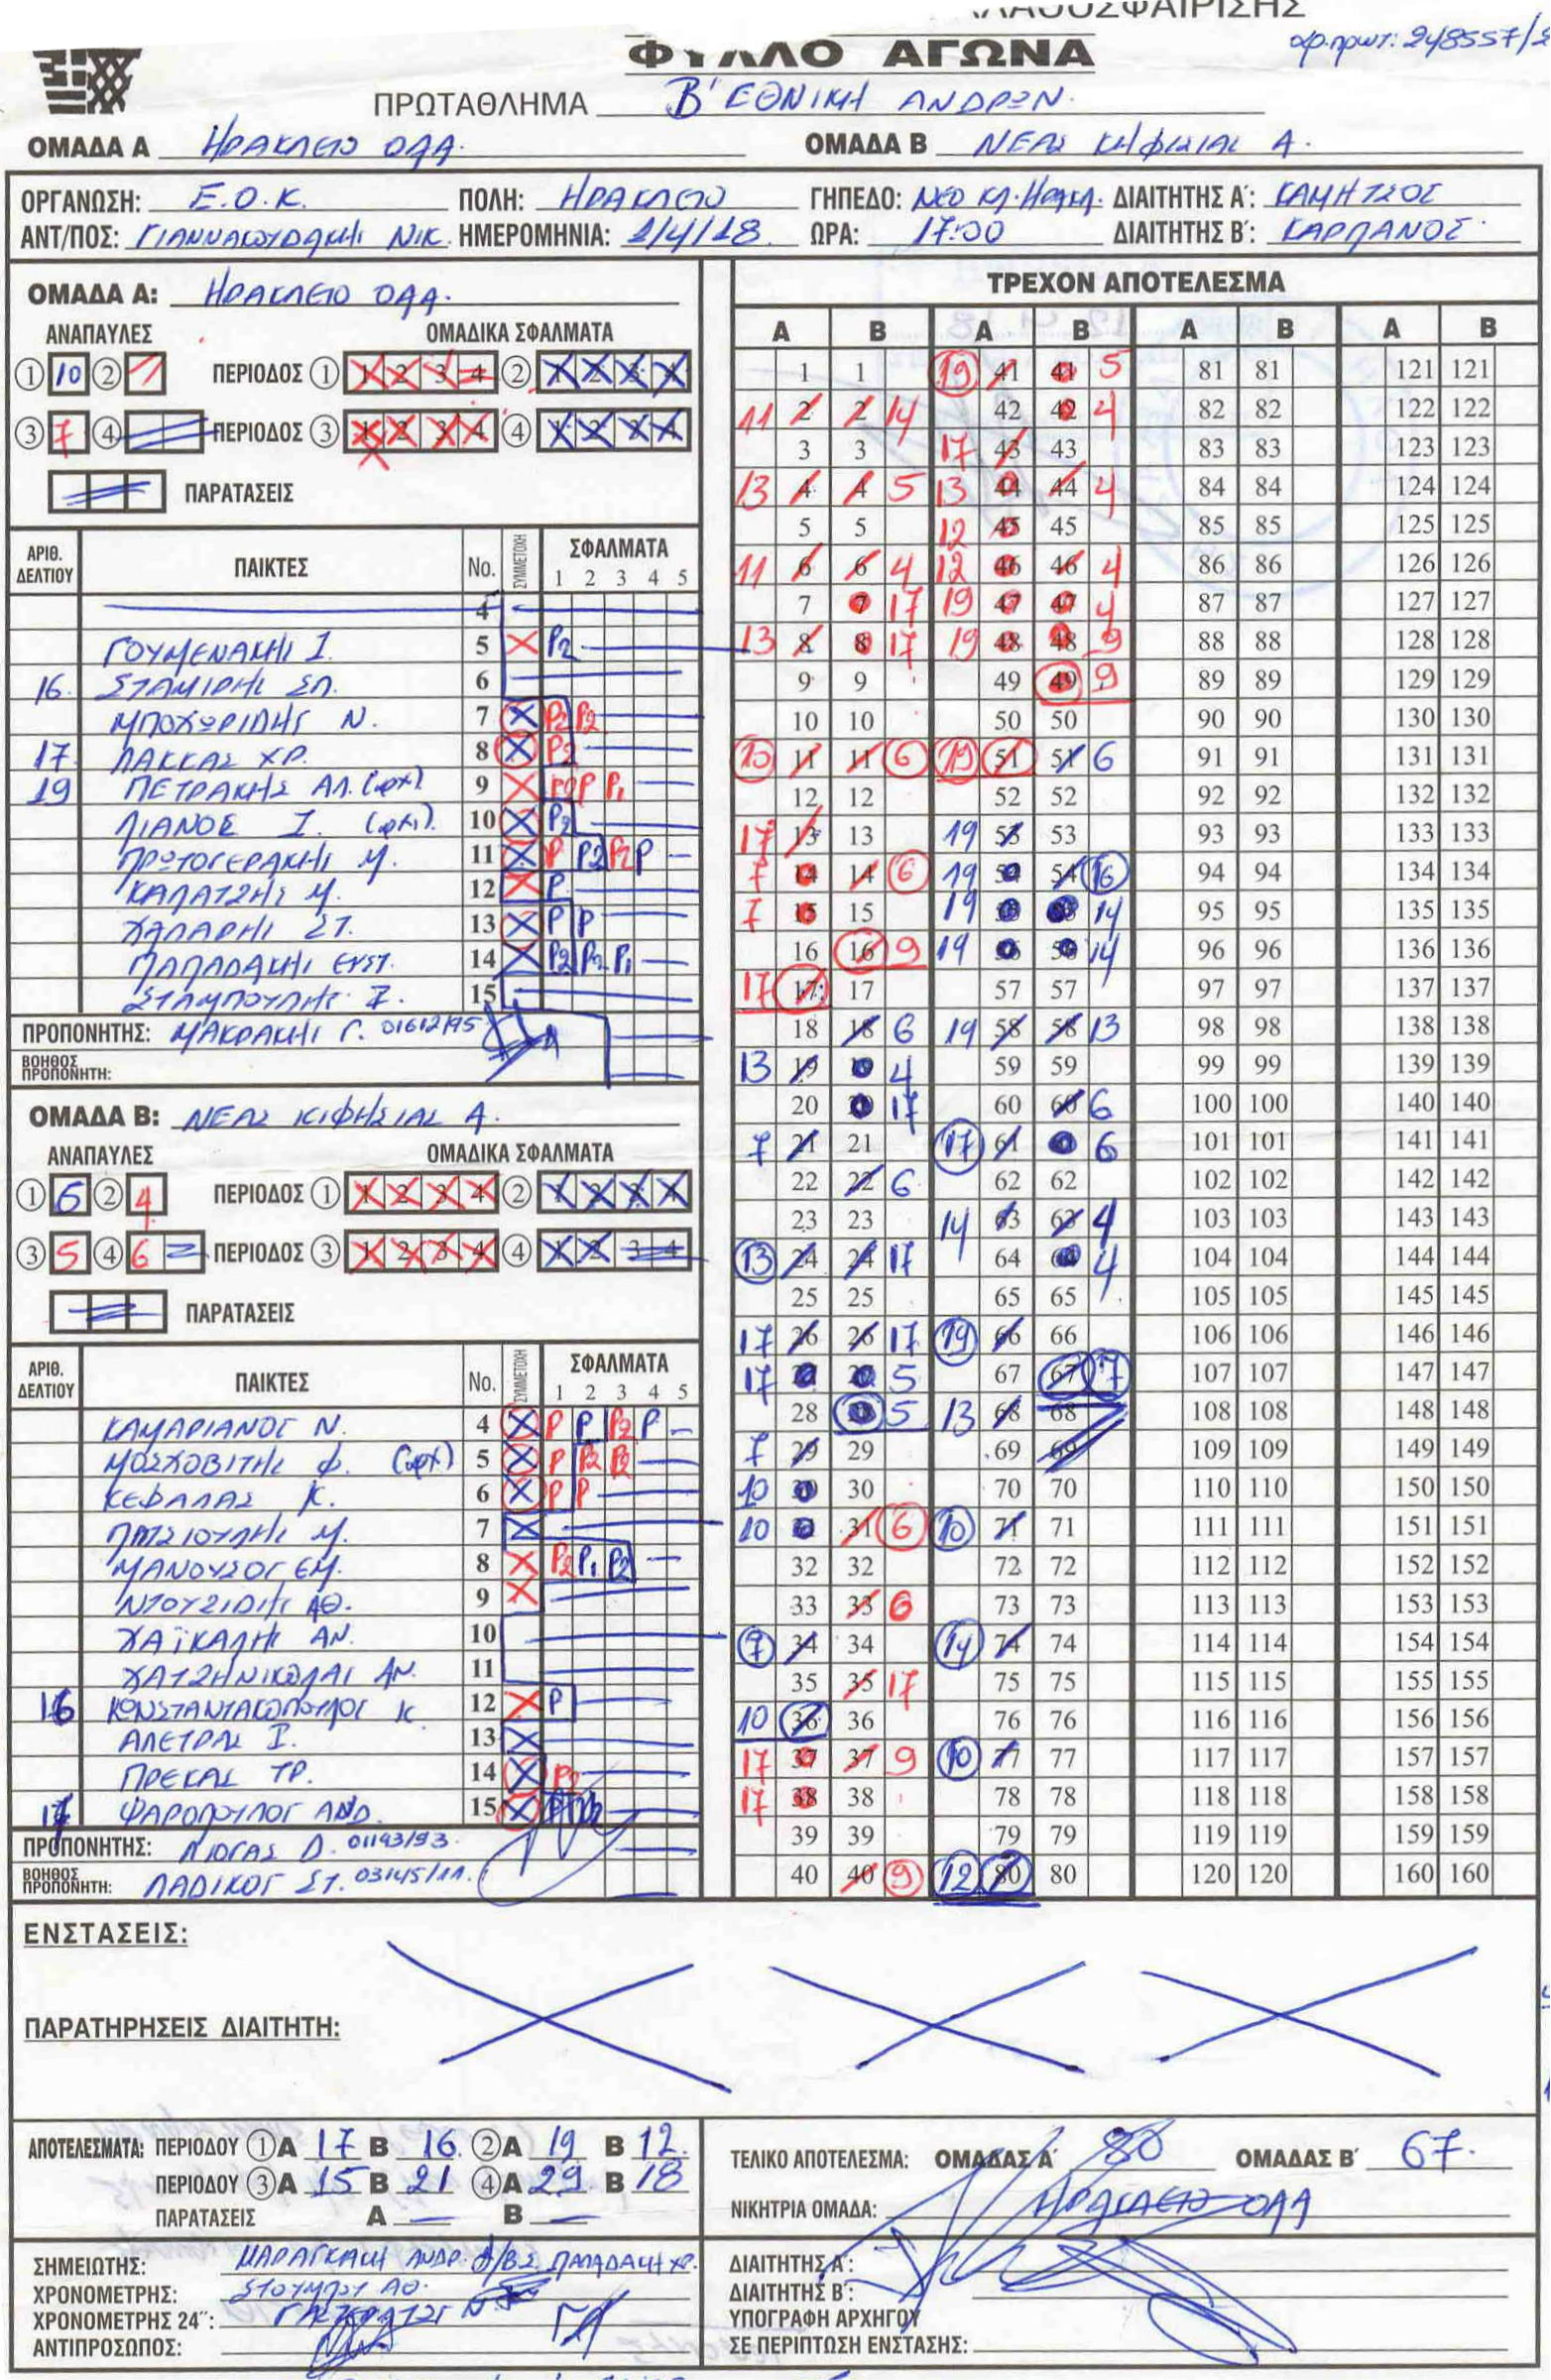 ΦΥΛΛΟ ΑΓΩΝΑ
αρ.πρωτ: 248557/2
ΠΡΩΤΑΘΛΗΜΑ Β' ΕΘΝΙΚΗ ΑΝΔΡΩΝ.
ΟΜΑΔΑ Α ΗΡΑΚΛΕΙΟ ΟΑΑ. ΟΜΑΔΑ Β ΝΕΑΣ ΚΗΦΙΣΙΑΣ Α.
ΟΡΓΑΝΩΣΗ: Ε.Ο.Κ. ΠΟΛΗ: ΗΡΑΚΛΕΙΟ ΓΗΠΕΔΟ: ΝΕΟ ΚΛ.ΗΡΑΚΛ. ΔΙΑΙΤΗΤΗΣ Α΄: ΚΑΜΗΤΣΟΣ
ΑΝΤ/ΠΟΣ: ΓΙΑΝΝΑΚΟΥΔΑΚΗΣ ΝΙΚ. ΗΜΕΡΟΜΗΝΙΑ: 1/4/18 ΩΡΑ: 17:00 ΔΙΑΙΤΗΤΗΣ Β΄: ΚΑΡΠΑΝΟΣ
ΟΜΑΔΑ Α: ΗΡΑΚΛΕΙΟ ΟΑΑ.
ΑΝΑΠΑΥΛΕΣ ΟΜΑΔΙΚΑ ΣΦΑΛΜΑΤΑ
① 10 ② ΠΕΡΙΟΔΟΣ ① 1 2 3 4 ② 1 2 3 4
③ 7 ④ ΠΕΡΙΟΔΟΣ ③ 1 2 3 4 ④ 1 2 3 4
ΠΑΡΑΤΑΣΕΙΣ
ΑΡΙΘ. ΔΕΛΤΙΟΥ ΠΑΙΚΤΕΣ No. ΣΥΜΜΕΤΟΧΗ ΣΦΑΛΜΑΤΑ
1 2 3 4 5
4
ΓΟΥΜΕΝΑΚΗΣ Ι. 5 P2
16. ΣΤΑΜΙΡΗΣ ΣΠ. 6
ΜΠΟΧΩΡΙΔΗΣ Ν. 7 P2 P2
17 ΛΑΚΚΑΣ ΧΡ. 8 P2
19 ΠΕΤΡΑΚΗΣ ΑΛ. (αρχ). 9 P2 P P1
ΛΙΑΝΟΣ Ι. 10 P2
ΠΡΩΤΟΓΕΡΑΚΗΣ Μ. 11 P P2 P2 P
ΚΑΛΑΤΖΗΣ Μ. 12 P
ΧΑΛΑΡΗΣ ΣΤ. 13 P P
ΠΑΠΑΔΑΚΗΣ ΕΥΣΤ. 14 P2 P2 P1
ΣΤΑΜΠΟΥΛΗΣ Ι. 15
ΠΡΟΠΟΝΗΤΗΣ: ΜΑΚΡΑΚΗΣ Γ. 01612/95
ΒΟΗΘΟΣ ΠΡΟΠΟΝΗΤΗ:
ΟΜΑΔΑ Β: ΝΕΑΣ ΚΙΦΗΣΙΑΣ Α.
ΑΝΑΠΑΥΛΕΣ ΟΜΑΔΙΚΑ ΣΦΑΛΜΑΤΑ
① 6 ② 4 ΠΕΡΙΟΔΟΣ ① 1 2 3 4 ② 1 2 3 4
③ 5 ④ 6 ΠΕΡΙΟΔΟΣ ③ 1 2 3 4 ④ 1 2 3 4
ΠΑΡΑΤΑΣΕΙΣ
ΑΡΙΘ. ΔΕΛΤΙΟΥ ΠΑΙΚΤΕΣ No. ΣΥΜΜΕΤΟΧΗ ΣΦΑΛΜΑΤΑ
1 2 3 4 5
ΚΑΜΑΡΙΑΝΟΣ Ν. 4 P P P2 P
ΜΟΣΧΟΒΙΤΗΣ Φ. (αρχ) 5 P P2 P2
ΚΕΦΑΛΑΣ Κ. 6 P P
Μ. 7
ΜΑΝΟΥΣΟΣ ΕΜ. 8 P2 P1 P2
ΝΤΟΥΣΙΔΗΣ ΑΘ. 9
ΧΑΪΚΑΛΗΣ ΑΝ. 10
ΧΑΤΖΗΝΙΚΟΛΑΣ ΑΝ. 11
16 ΚΩΝΣΤΑΝΤΑΚΟΠΟΥΛΟΣ Κ. 12 P
ΑΛΕΤΡΑΣ Ι. 13
ΠΡΕΚΑΣ ΤΡ. 14 P2
17 ΨΑΡΟΠΟΥΛΟΣ ΑΝΔ. 15
ΠΡΟΠΟΝΗΤΗΣ: ΛΙΟΓΑΣ Δ. 01193/93.
ΒΟΗΘΟΣ ΠΡΟΠΟΝΗΤΗ: ΛΑΔΙΚΟΣ ΣΤ. 03145/11.
ΤΡΕΧΟΝ ΑΠΟΤΕΛΕΣΜΑ
Α Β Α Β Α Β Α Β
1 1 19 41 41 5 81 81 121 121
11 2 2 14 42 42 4 82 82 122 122
3 3 17 43 43 83 83 123 123
13 4 4 5 13 44 44 4 84 84 124 124
5 5 12 45 45 85 85 125 125
11 6 6 4 12 46 46 4 86 86 126 126
7 7 17 19 47 47 4 87 87 127 127
13 8 8 17 19 48 48 9 88 88 128 128
9 9 49 49 9 89 89 129 129
10 10 50 50 90 90 130 130
13 11 11 6 19 51 51 6 91 91 131 131
12 12 52 52 92 92 132 132
17 13 13 19 53 53 93 93 133 133
7 14 14 6 19 54 54 16 94 94 134 134
7 15 15 19 55 55 14 95 95 135 135
16 16 9 19 56 56 14 96 96 136 136
17 17 17 57 57 97 97 137 137
18 18 6 19 58 58 13 98 98 138 138
13 19 19 4 59 59 99 99 139 139
20 20 17 60 60 6 100 100 140 140
7 21 21 17 61 61 6 101 101 141 141
22 22 6 62 62 102 102 142 142
23 23 14 63 63 4 103 103 143 143
13 24 24 17 64 64 4 104 104 144 144
25 25 65 65 105 105 145 145
17 26 26 17 19 66 66 106 106 146 146
17 27 27 5 67 67 17 107 107 147 147
28 28 5 13 68 68 108 108 148 148
7 29 29 69 69 109 109 149 149
10 30 30 70 70 110 110 150 150
10 31 31 6 10 71 71 111 111 151 151
32 32 72 72 112 112 152 152
33 33 6 73 73 113 113 153 153
7 34 34 19 74 74 114 114 154 154
35 35 17 75 75 115 115 155 155
10 36 36 76 76 116 116 156 156
17 37 37 9 10 77 77 117 117 157 157
17 38 38 78 78 118 118 158 158
39 39 79 79 119 119 159 159
40 40 9 12 80 80 120 120 160 160
ΕΝΣΤΑΣΕΙΣ:
ΠΑΡΑΤΗΡΗΣΕΙΣ ΔΙΑΙΤΗΤΗ:
ΑΠΟΤΕΛΕΣΜΑΤΑ: ΠΕΡΙΟΔΟΥ ① Α 17 Β 16. ② Α 19 Β 12.
ΠΕΡΙΟΔΟΥ ③ Α 15 Β 21 ④ Α 29. Β 18
ΠΑΡΑΤΑΣΕΙΣ Α — Β —
ΤΕΛΙΚΟ ΑΠΟΤΕΛΕΣΜΑ: ΟΜΑΔΑΣ Α΄ 80 ΟΜΑΔΑΣ Β΄ 67.
ΝΙΚΗΤΡΙΑ ΟΜΑΔΑ: ΗΡΑΚΛΕΙΟ ΟΑΑ
ΣΗΜΕΙΩΤΗΣ: ΜΑΡΑΓΚΑΚΗ ΑΝΔΡ. ΠΑΠΑΔΑΚΗ ΧΡ.
ΧΡΟΝΟΜΕΤΡΗΣ: ΣΤΟΥΜΠΟΥ ΑΘ.
ΧΡΟΝΟΜΕΤΡΗΣ 24΄΄:
ΑΝΤΙΠΡΟΣΩΠΟΣ:
ΔΙΑΙΤΗΤΗΣ Α΄:
ΔΙΑΙΤΗΤΗΣ Β΄:
ΥΠΟΓΡΑΦΗ ΑΡΧΗΓΟΥ
ΣΕ ΠΕΡΙΠΤΩΣΗ ΕΝΣΤΑΣΗΣ: